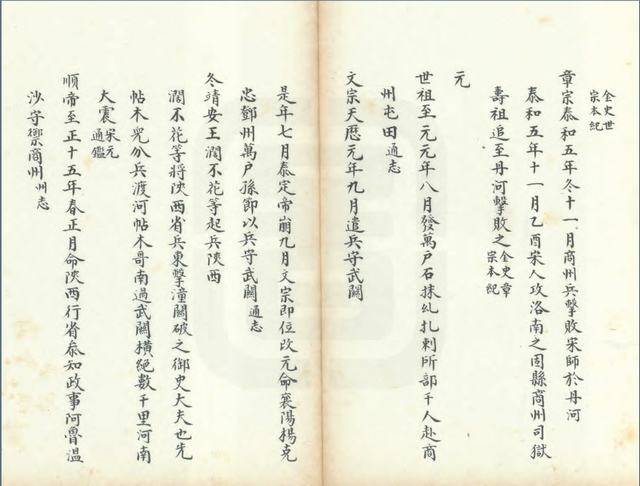 金史世宗本紀
章宗泰和五年冬十一月商州兵擊敗宋師於丹河
泰和五年十一月乙酉宋人攻洛南之固縣商州司獄
壽祖追至丹河擊敗之金史章宗本紀
元
世祖至元元年八月發萬戶石抹糺扎剌所部千人赴商
州屯田通志
文宗天厯元年九月遣兵守武關
是年七月泰定帝崩九月文宗即位改元命襄陽楊克
忠鄧州萬戶孫節以兵守武關通志
冬靖安王濶不花等起兵陝西
濶不花等將陝西省兵東擊潼關破之御史大夫也先
帖木兒分兵渡河帖木哥南過武關橫絕數千里河南
大震宋元通鑑
順帝至正十五年春正月命陝西行省叅知政事阿魯溫
沙守禦商州州志